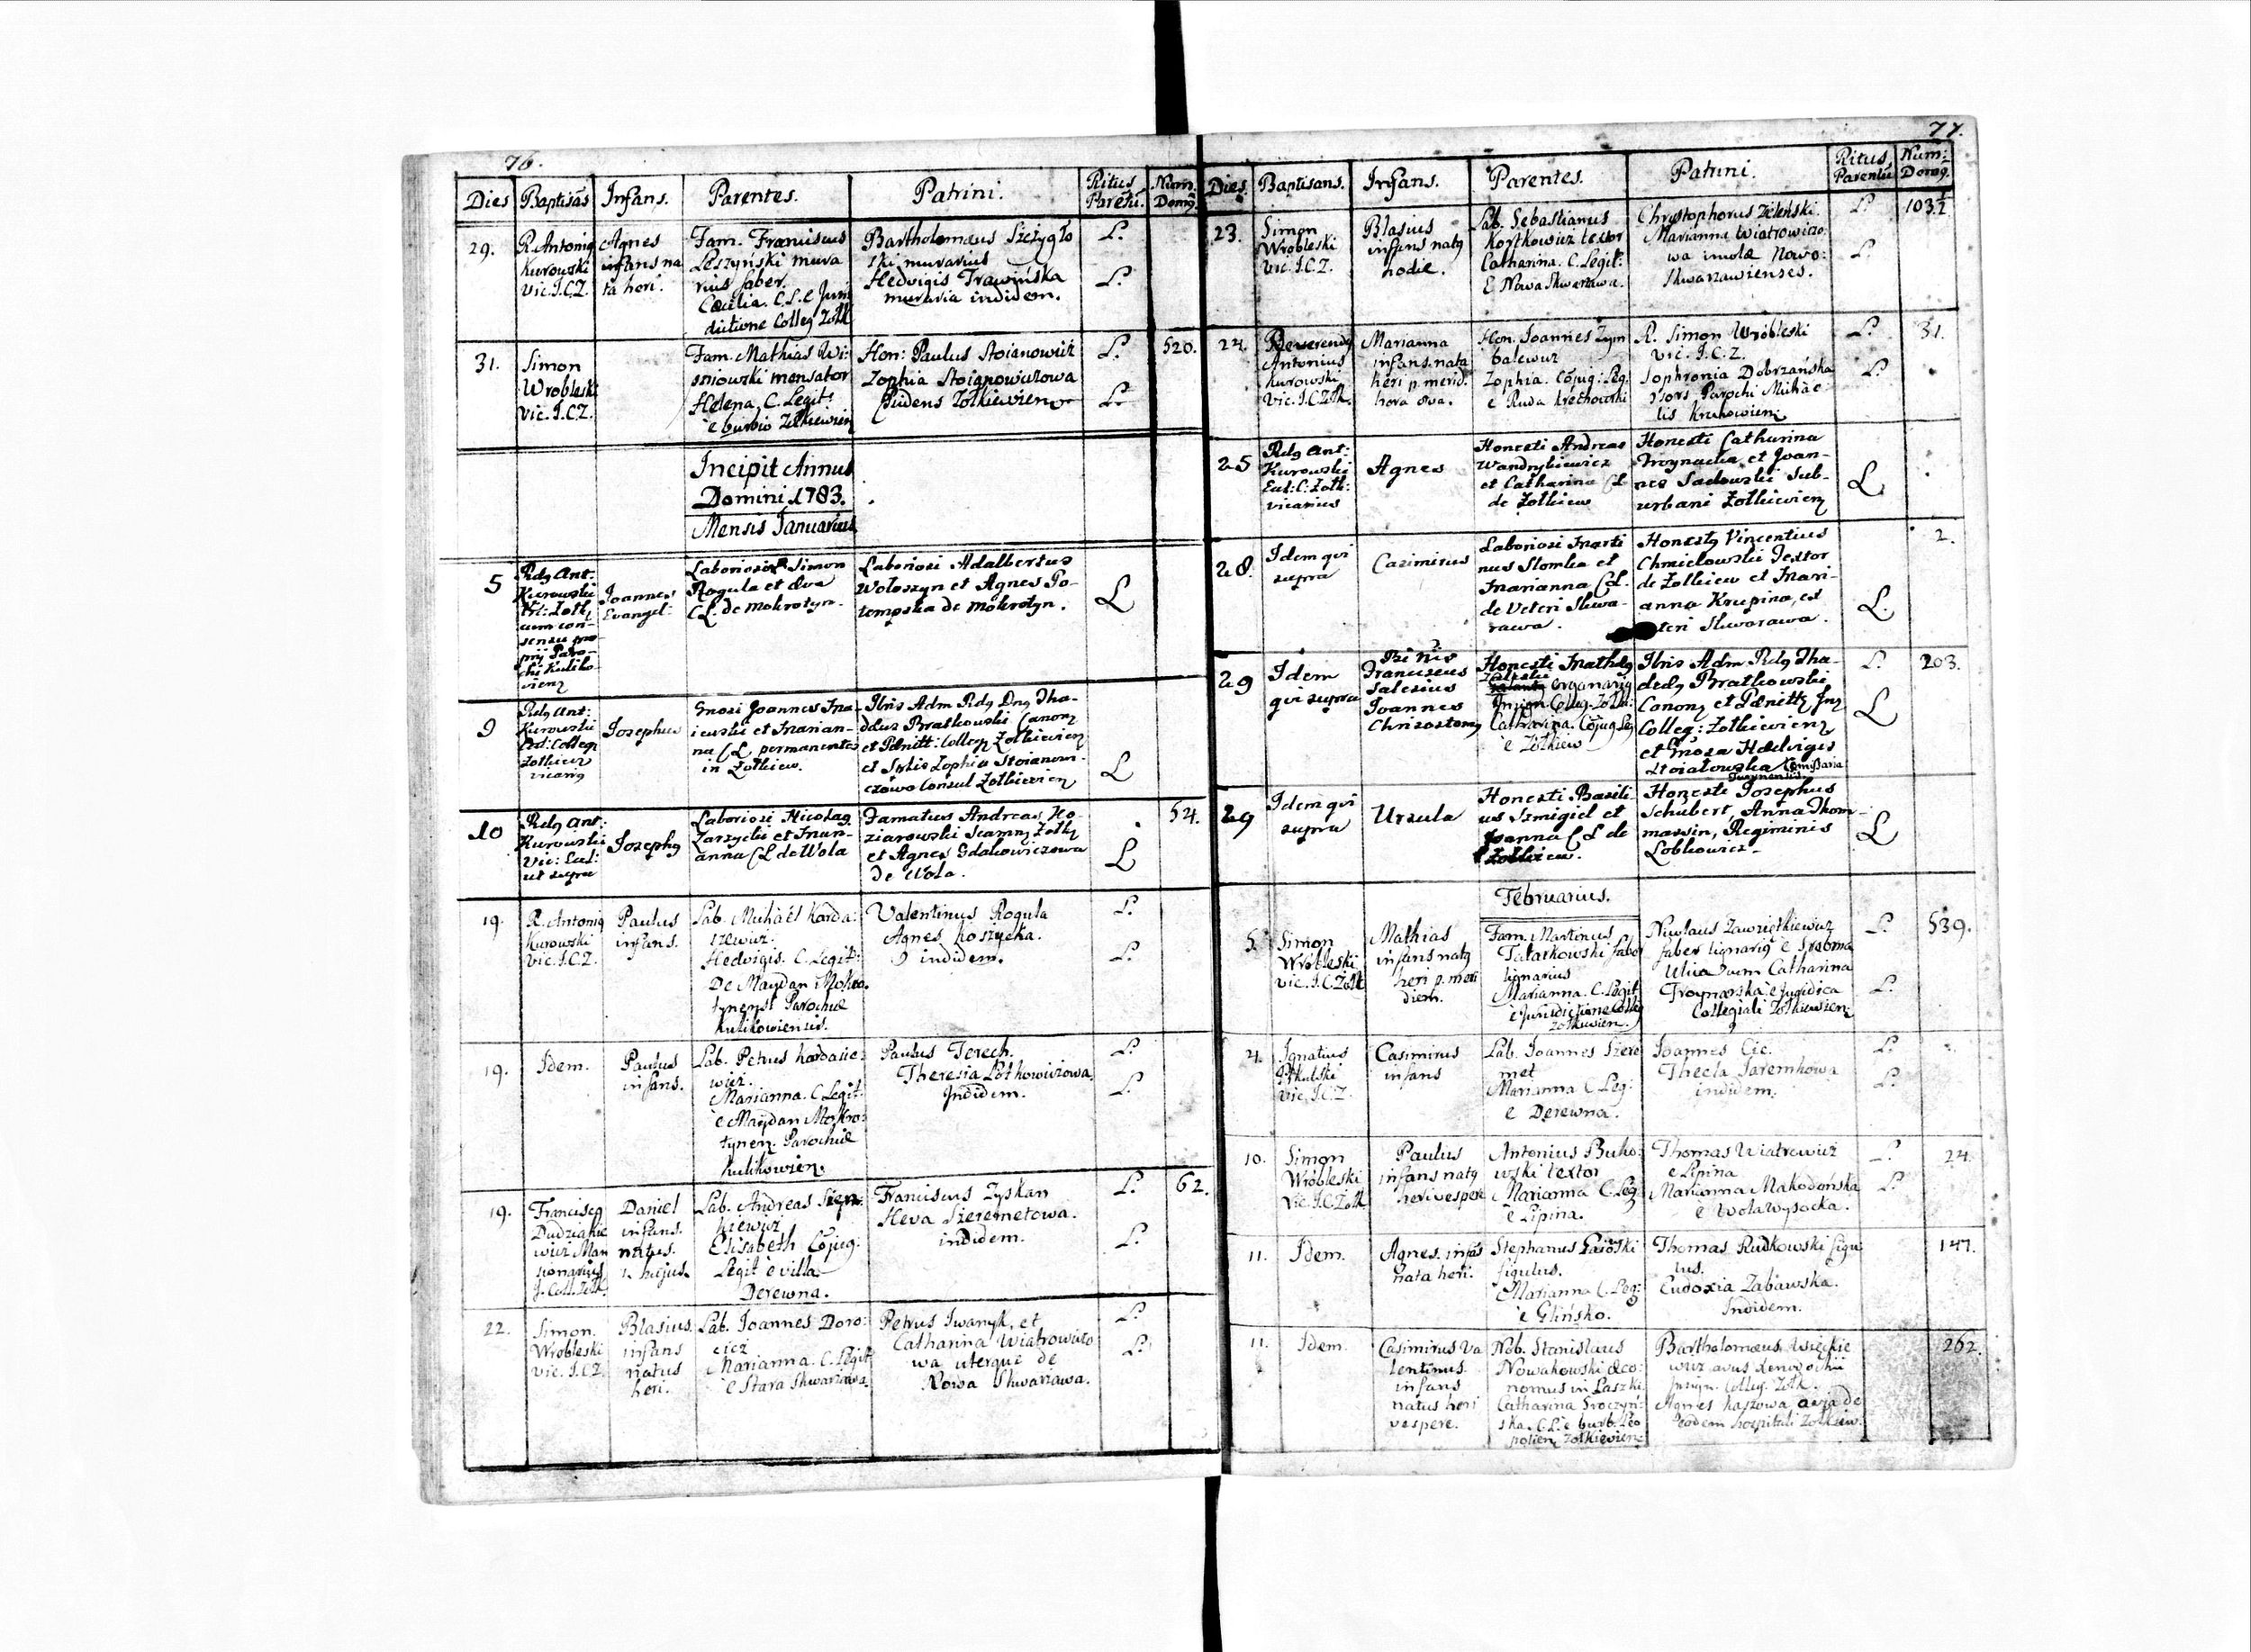 76.
Dies Baptisãs Infans. Parentes. Patrini. Ritus Parētũ. Num. Domg.
29.
R. Antoniq
Kurowski
Vic. I.C.Z.
Agnes
infans na
ta heri.
Fam. Franciscus
Leszyński mura
rius faber.
Cæcilia. C. L. e Juris
dictione Colleg Zołk
Bartholomæus Szczygło
ski murarius
Hedvigis Trawińska
muraria indidem.
L.
L.
31.
Simon
Wrobleski
Vic. I.C.Z.
Fam. Mathias Wi:
sniowski mensator
Helena, C. Legit:
e burbio Zołkiewien
Hon: Paulus Stoianowicz
Zophia Stoianowiczowa
Cridens Zołkiewien
L.
L.
520.
Incipit Annus
Domini 1783.
Mensis Januarius
5
Rdg Ant:
Kurowski
Vic: Zołk,
cum con-
sensu pro-
prij Paro-
chi Kuliko-
vieng
Joannes
Evangel:
Laboriosi Simon
Rogula et Eva
CL. de Mokrotyn.
Laboriosi Adalbertus
Wołoszyn et Agnes Po-
tempska de Mokrotyn.
L
9
Rdg Ant:
Kurowski
Ecl: Colleg
Zołkiew
vicariq
Josephus
Gnosi Joannes Ma-
iewski et Marian-
na CL permanentes
in Zołkiew.
Illris Adm Rdg Dng Tha-
deus Bratkowski Canong
et Pænitt: Colleg Zołkiewieng
et Spkis Zophia Stoianow-
czowa Consul Zołkiewieng
L
10
Rdg Ant:
Kurowski
Vic: Ecl:
ut supra
Josephg
Laboriosi Nicolag
Zarzycki et Mari-
anna CL de Wola
Famatus Andreas Ko-
ziarowski Scamng Zołkg
et Agnes Gdakowiczowa
de Wola.
L
54.
19.
R. Antoniq
Kurowski
Vic. I.C.Z.
Paulus
infans.
Lab. Michaēl Karda:
szewicz.
Hedvigis. C. Legit:
De Maydan Mokro.
tynensi Parochiæ
Kulikowiensis.
Valentinus Rogula
Agnes Koszycka.
indidem.
L.
L.
19.
Idem.
Paulus
infans.
Lab. Petrus Kardasie:
wicz.
Marianna. C. Legit:
e Maydan Mokro:
tynen. Parochiæ
Kulikowien.
Paulus Terech.
Theresia Letkowiczowa.
Indidem.
L.
L.
19.
Franciscg
Dudziakie
wicz Man
sionarius
J. Coll. Zołk
Daniel
infans.
natus.
1. hujus.
Lab. Andreas Sien:
kiewicz
Elisabeth Cõjug:
Legit e villa
Derewna.
Franciscus Zyskan
Heva Szeremetowa.
indidem.
L.
L.
62.
22.
Simon.
Wrobleski
Vic. I.C.Z.
Blasius.
infans
natus
heri.
Lab. Joannes Doro:
cicz
Marianna. C. Legit
e Stara Skwarzawa.
Petrus Iwanyk, et
Catharina Wiatrowiczo
wa uterque de
Nowa Skwarzawa.
L.
L.
77.
Dies. Baptisans. Infans. Parentes. Patrini. Ritus Parentũ Num: Domg.
23.
Simon
Wrobleski
Vic. I.C.Z.
Blasius
infans natg
hodie.
Lab. Sebastianus
Kortkowicz textor
Catharina. C. Legit:
E Nowa Skwarzawa.
Chrystophorus Zieleński.
Marianna Wiatrowiczo
wa incolæ Nowo:
Skwarzawienses.
L.
L.
103.½
24.
Reverendg
Antonius
Kurowski
Vic. I.C.Zołk.
Marianna
infans nata
heri p. merid.
hora 8va.
Hon. Joannes Zym
balewicz
Zophia. Cõjug: Leg.
e Ruda Krechowski
R. Simon Wrobleski
Vic. I.C.Z.
Sophronia Dobrzańska
Uxors Parochi Michàe
lis Krechowien.
L.
L.
31.
25
Rdg Ant:
Kurowski
Ecl: C: Zołk:
vicarius
Agnes
Honesti Andreas
Wandrykiewicz
et Catharina CL
de Zołkiew
Honesti Catharina
Troynacka et Joan-
nes Sadowski Sub-
urbani Zołkiewieng
L
28.
Idem qvi
supra
Casimirus
Laboriosi Marti
nus Slomka et
Marianna CL.
de Veteri Skwa-
rawa.
Honestg Vincentius
Chmielowski Textor
de Zołkiew et Mari-
anna Krupina, ex
teri Skwarawa.
L.
2.
29
Idem
qvi supra
Binis
Franciscus
Salesius
Joannes
Chrisostomg
Honesti Mathēg
Zaleski
Organariq
Insign Colleg. Zołk:
Catharina. Cõjug Leg
e Zołkiew
Illris Adm Rdg Tha-
deög Bratkowski
Canong et Pænittg Ing
Colleg: Zołkiewieng
et Gnosa Hedvigis
Stoiałowska Comißaria
Turynensis
L.
L
203.
29
Idem qvi
supra
Ursula
Honesti Basili
us Szmigiel et
Joanna CL de
Zołkiew.
Honesti Josephus
Schubert, Anna Thom-
massin, Regiminis
Lobkowicz-
L
Februarius.
5.
Simon
Wrobleski
Vic. I.C.Zołk
Mathias
infans natg
heri p. meri
diem.
Fam. Martinus
Tatarkowski fabr
lignarius
Marianna. C. Legit
e Jurisdictione Colleg
Zołkiewien.
Nicolaus Zawziętkiewicz
faber lignariq e
Ulica cum Catharina
Troynarska e Jurydica
Collegiali Zołkiewien:
L.
L.
539.
4.
Ignatius
Pikulski
Vic. I.C.Z.
Casimirus
infans
Lab. Joannes Szere
met
Marianna C. Leg:
e Derewna.
Joannes Cic.
Thecla Jaremkowa
indidem.
L.
L.
10.
Simon
Wrobleski
Vic. I.C.Zołk
Paulus
infans natg
heri vespere
Antonius Buko:
wski textor
Marianna C. Leg:
e Lipina.
Thomas Wiatrowicz
e Lipina
Marianna Makodońska
e Wola Wysocka.
L.
L.
24.
11.
Idem.
Agnes. infãs
nata heri.
Stephanus
figulus.
Marianna C. Leg:
e Glińsko.
Thomas Rudkowski figu
lus.
Eudoxia Zabawska.
Indidem.
147.
11.
Idem.
Casimirus Va
lentinus.
infans
natus heri
vespere.
Nob. Stanislaus
Nowakowski æco:
nomus in Laszki.
Catharina Sroczyń:
ska. C.L. e burb. Leo
polien Zołkiewien:
Bartholomæus Więckie
wicz avus Xenodochii
Insign. Colleg. Zołk.
Agnes Kaszowa avia de
eodem hospitali Zołkiew.
262.